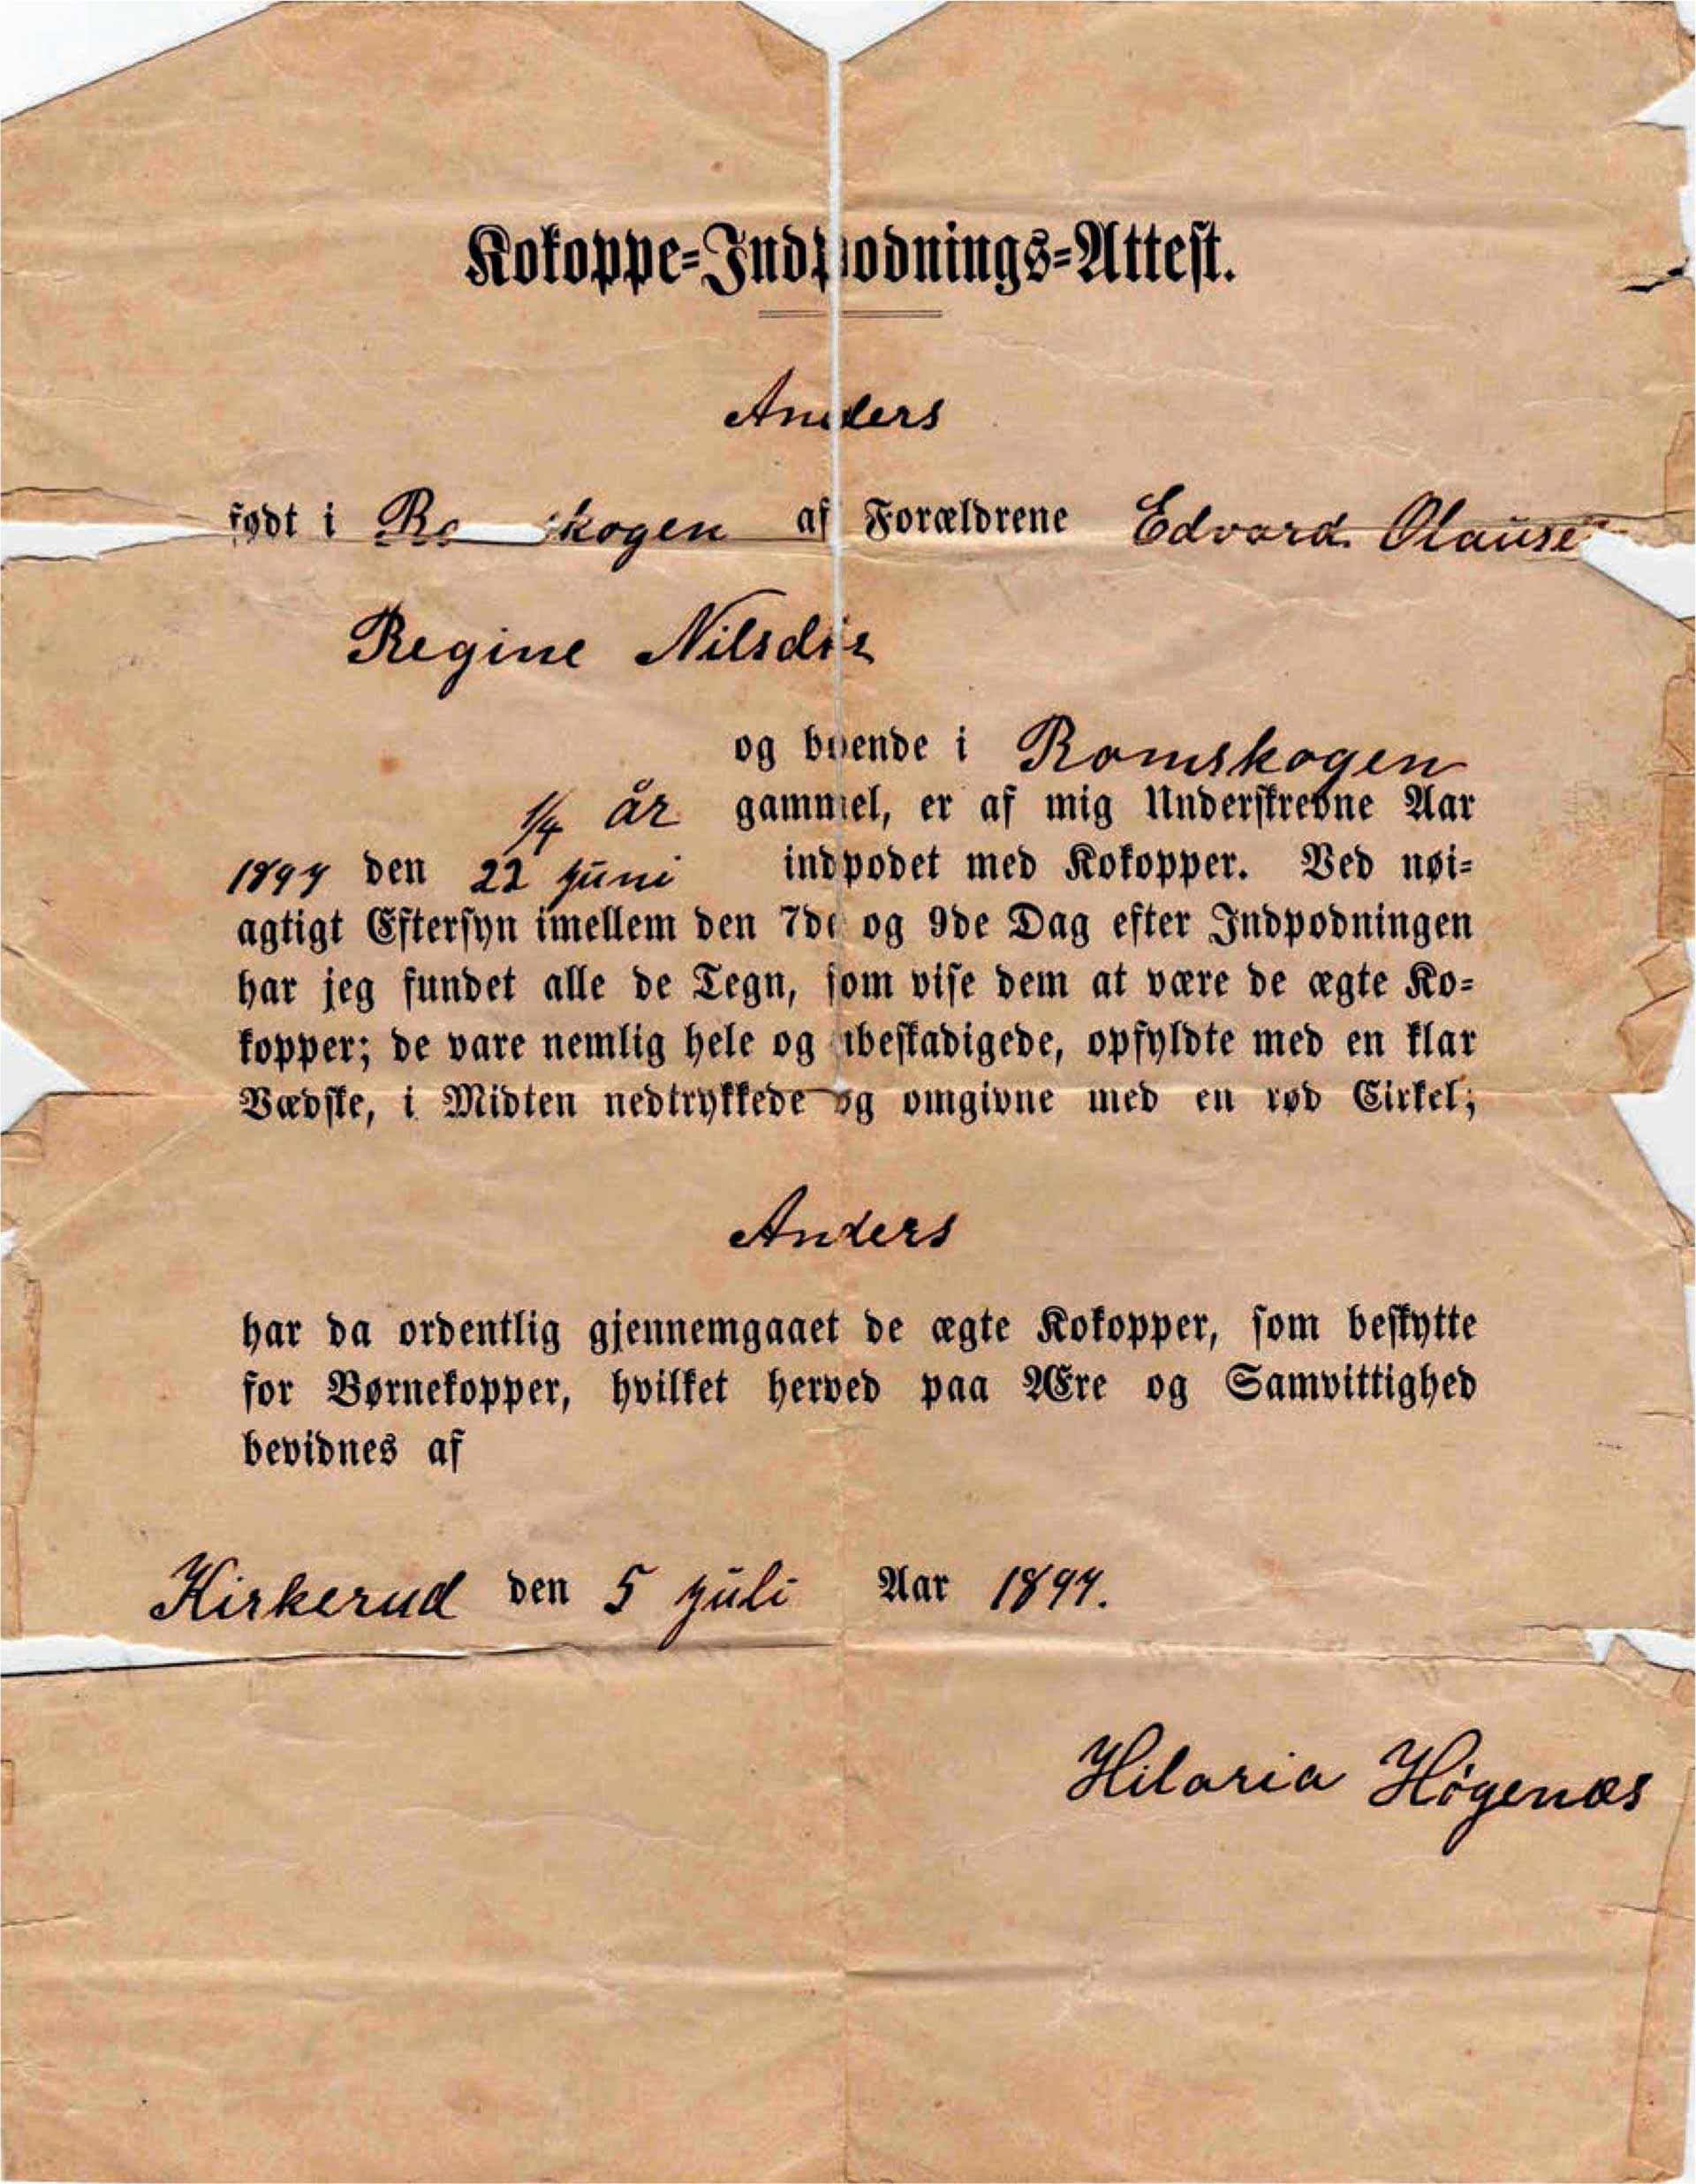 Kokoppe-Indpodnings-Attest.
Anders
født i Romskogen af Forældrene Edvard Olausen
Regine Nilsdtr
og boende i Romskogen
1/4 år gammel, er af mig Underskrevne Aar
1894 den 22 juni indpodet med Kokopper. Ved nøi-
agtigt Eftersyn imellem den 7de og 9de Dag efter Indpodningen
har jeg fundet alle de Tegn, som vise dem at være de ægte Ko-
kopper; de vare nemlig hele og ubeskadigede, opfyldte med en klar
Vædske, i Midten nedtrykkede og omgivne med en rød Cirkel;
Anders
har da ordentlig gjennemgaaet de ægte Kokopper, som beskytte
for Børnekopper, hvilket herved paa Ære og Samvittighed
bevidnes af
Kirkerud den 5 juli Aar 1894.
Hilaria Högenæs